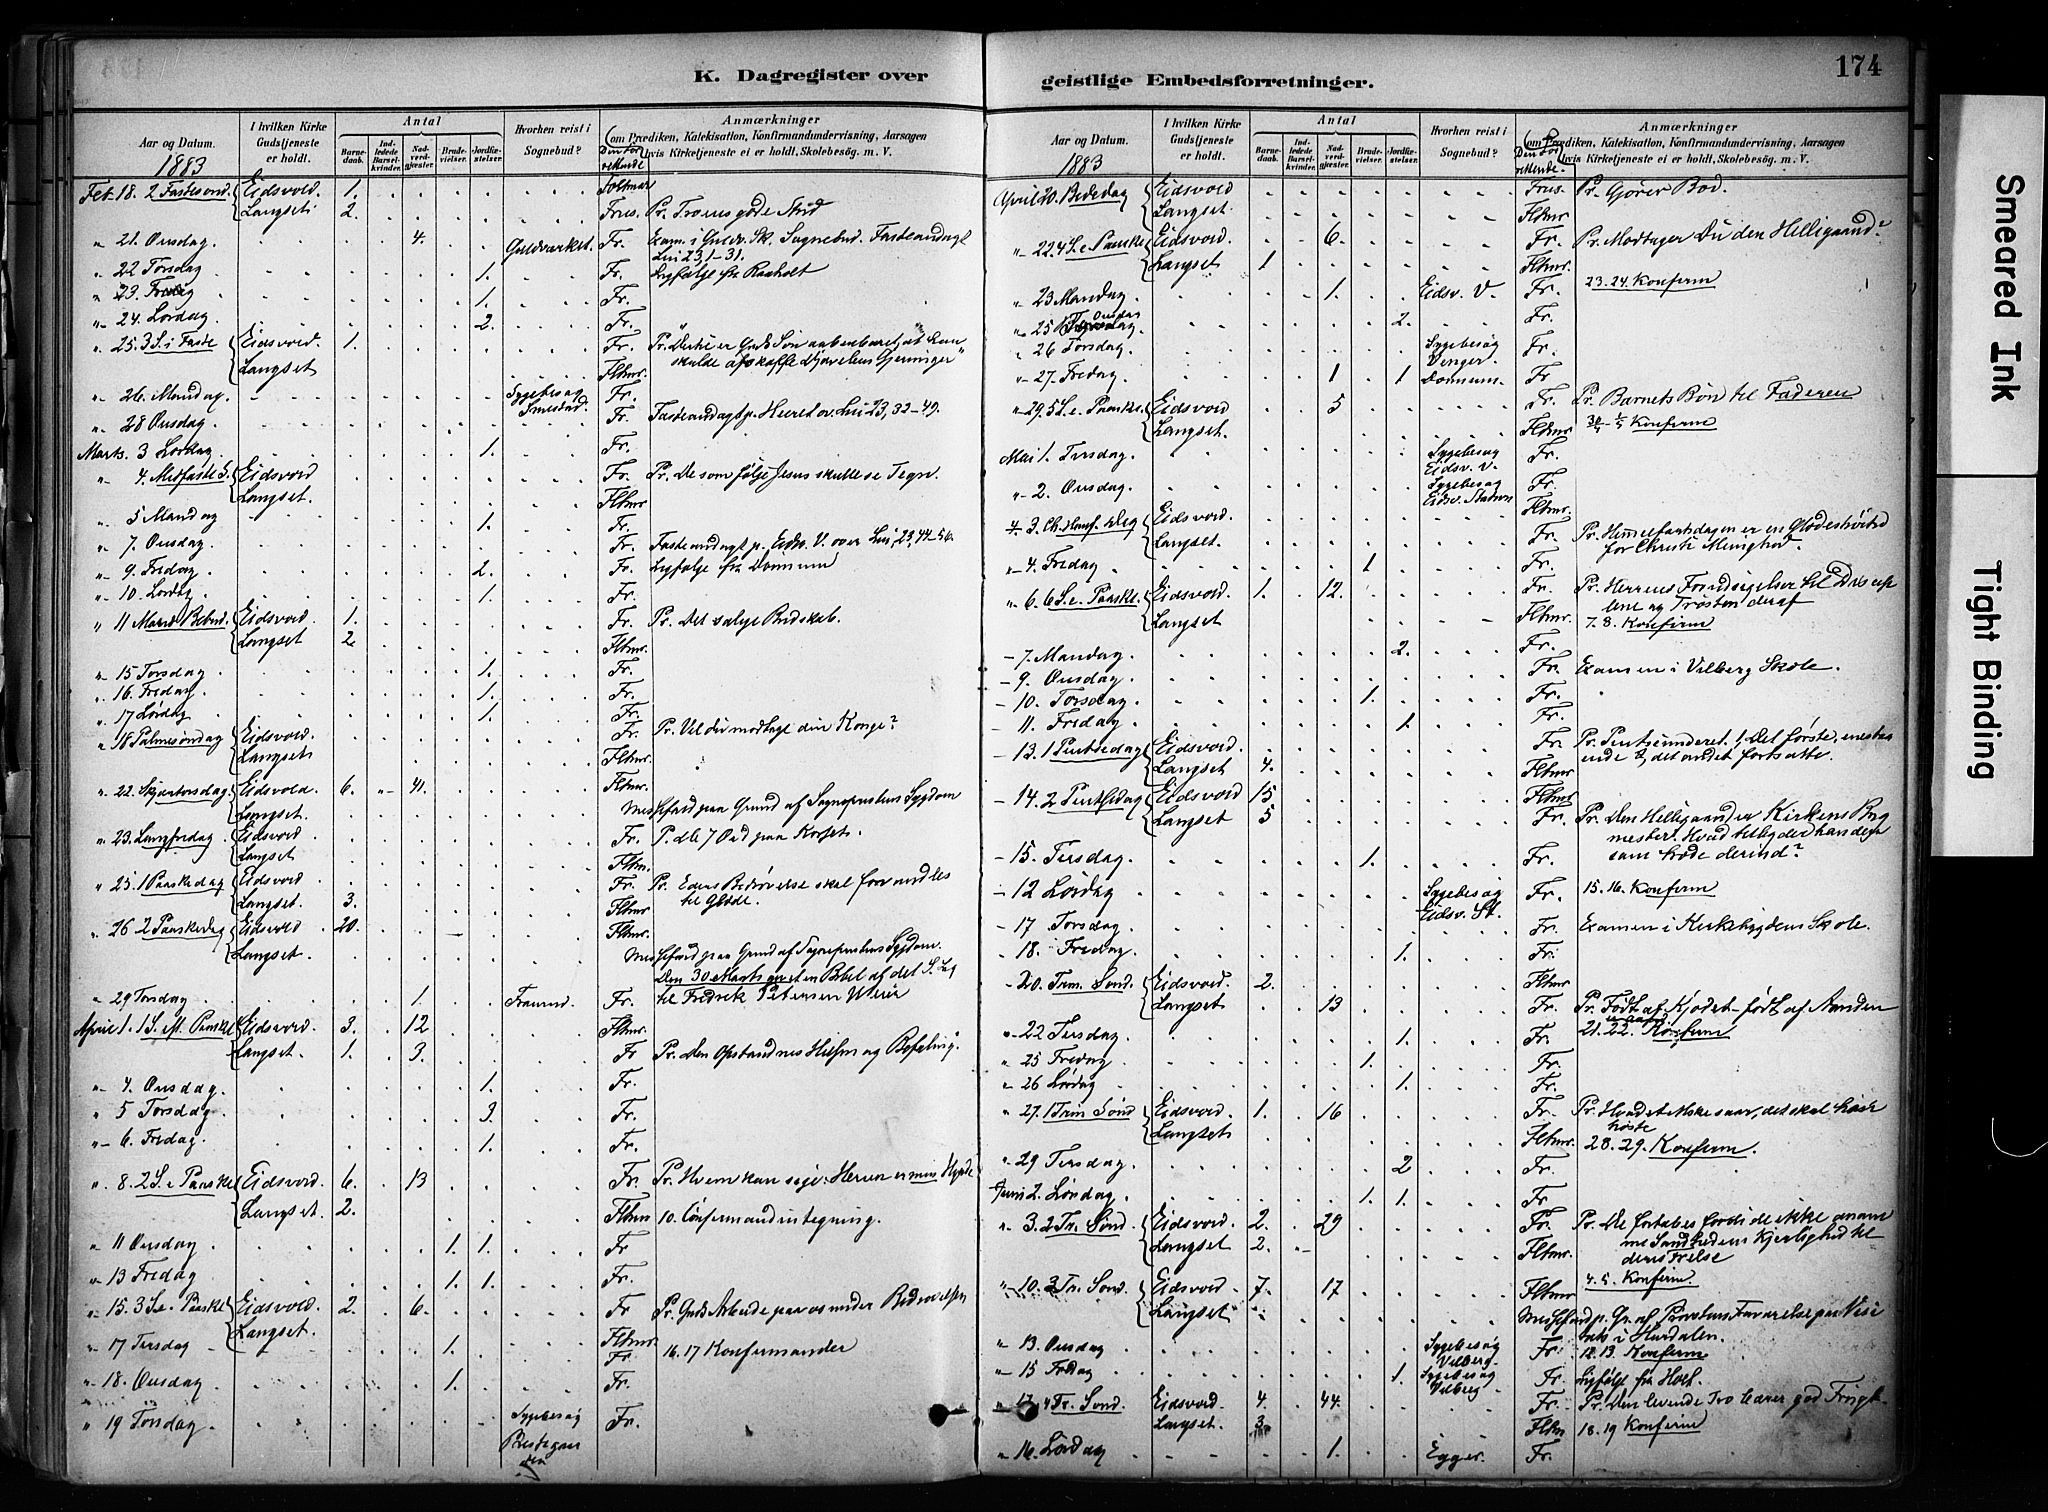 K. Dagregister over
Aar og Datum.
I hvilken Kirke Gudstjeneste er holdt.
Antal
Barnedaab.
Indledede Barselkvinder.
Nadverdgjester.
Brudevielser.
Jordfæstelser.
Hvorhen reist i Sognebud?
Anmærkninger
(om Prædiken, Katekisation, Konfirmandundervisning, Aarsagen hvis Kirketjeneste ei er holdt, Skolebesøg. m. V.
1883
Feb. 18. 2 Fastesønd. Eidsvold. 1.
Langset. 2. Frus. Pr. Troens gode Strid
" 21. Onsdag. 4. Guldværket. Fr. Exam. i Guldv. Sk. Sognebud. Fasteandagt
23, 1-31.
" 22 Torsdag 1. Fr. Ligfølge fr. Raaholt
" 23. Fredag 1. Fr.
" 24. Lørdag 2. Fr.
" 25. 3 S. i Faste Eidsvold. 1. Fr. Pr. "Dertil er Guds Søn aabenbaret, at han
Langset Flhmr. skulde afskaffe Djævelens Gjerninger"
" 26. Mandag. Sygebesøg Fr.
" 28 Onsdag. Fr. Fasteandagt p. 23, 32-49.
Marts. 3 Lørdag 1. Fr.
" 4. Midfaste S. Eidsvold Fr. Pr. De som følge Jesus skulle se Tegn.
Langset. Flhmr.
" 5 Mandag 1. Fr.
" 7. Onsdag. Fr. Fasteandagt p. Eidsv. V. over 23, 44-56.
" 9. Fredag 2. Fr. Ligfølge fra Dønnum
" 10. Lørdag 1. Fr.
" 11 Mariæ Bebud. Eidsvold 1. Fr. Pr. Det salige Budskab.
Langset 2. Flhmr.
" 15 Torsdag. 1. Fr.
" 16. Fredag 1. Fr.
" 17 Lørdag 1. Fr.
" 18 Palmesøndag Eidsvold. Fr. Pr. Vil du modtage din Konge?
Langset. Flhmr.
" 22. Skjærtorsdag Eidsvold 6. 4. Flhmr.
Langset. Messefald paa Grund af Sognepræstens Sygdom
" 23. Langfredag. Eidsvord Fr. P. de 7 Ord paa Korset.
Langset Flhmr.
" 25. 1 Paaskedag Eidsvord Fr. Pr. Eders Bedrøvelse skal forvandles
Langset. 3. Flhmr. til Glæde.
" 26 2 Paaskedag Eidsvold 20. Flhmr.
Langset. Messefald paa Grund af Sognepræstens Sygdom.
Den 30 Marts en Bibel af det
" 29 Torsdag 1. Fr. til Fredrik Petersen
April 1. 1 S. eft. Paaske Eidsvord. 3. 12 Flhmr.
Langset. 1. 3. Fr. Pr. Den Opstandnes Hilsen og Befaling.
" 4. Onsdag. 1. Fr.
" 5 Torsdag 3. Fr.
" 6. Fredag. 1. Fr.
" 8. 2 S. e. Paaske Eidsvord 6. 13 Fr. Pr. Hvem kan sige: Herren er min Hyrde
Langset. 2. Flhmr 10. Confirmandindtegning.
" 11 Onsdag 1. 1. Fr
" 13 Fredag 1. 1. Fr.
" 15. 3 S. e. Paaske Eidsvold. 2. 6. Fr Pr. Guds Arbeide paa os under Bedrøvelsen
Langset. Flhmr.
" 17 Tirsdag 1. Fr. 16. 17 Konfirmander
" 18. Onsdag 1. Fr.
" 19 Torsdag Sygebesøg Fr.
geistlige Embedsforretninger.
174
Aar og Datum.
I hvilken Kirke Gudstjeneste er holdt.
Antal
Barnedaab.
Indledede Barselkvinder.
Nadverdgjester.
Brudevielser.
Jordfæstelser.
Hvorhen reist i Sognebud?
Anmærkninger
(om Prædiken, Katekisation, Konfirmandundervisning, Aarsagen hvis Kirketjeneste ei er holdt, Skolebesøg. m. V.
1883
April 20. Bededag Eidsvold Frus. Pr. Gjører Bod.
Langset. Flhmr.
" 22. 4 S. e. Paaske Eidsvord 6. Fr. Pr. Modtager Du den Helligaand?
Langset 1 Flhmr.
" 23 Mandag. 1. Eidsv. V. Fr. 23. 24. Konfirm
" 25 Onsdag 2. Fr.
" 26 Torsdag. Sygebesøg Fr.
" 27. Fredag 1 1 Dønnum. Fr
" 29. 5 S. e. Paaske. Eidsvord 5 Fr. Pr. Barnets Bøn til Faderen
Langset. Flhmr. Konfirm
Mai 1. Tirsdag. Sygebesøg Eidsv. V. Fr.
" 2. Onsdag. Sygebesøg Fr.
3. Eidsvord Flhmr.
Langset. Fr. Pr. Himmelfartsdagen er en Glædeshøitid
for Christi Menighed.
" 4. Fredag 1 Fr.
" 6. 6 S. e. Paaske. Eidsvold 1. 12. Fr. Pr. Herrens Forudsigelser til
Langset Flhmr. og Trøsten deraf
7. 8. Konfirm
- 7. Mandag. 2. Fr.
- 9. Onsdag. Fr. Examen i Vilberg Skole.
- 10. Torsdag 1. Fr.
- 11. Fredag 1. Fr.
- 13. 1 Pintsedag Eidsvord. Fr. Pr. Pintseunderet. 1. Det første,
Langset 4. Flhmr. 2, det andet fortsatte.
- 14. 2 Pintsedag Eidsvord 15 Flhmr
Langset 5 Fr. Pr. Den Helligaand er Kirkens Byg
mester.
- 15. Tirsdag. 1. Fr. derind?
- 12 Lørdag Sygebesøg Eidsv. St. Fr. 15. 16. Konfirm
- 17 Torsdag. Fr. Examen i Kirkebygdens Skole.
- 18. Fredag 1. Fr.
- 20. Trin. Sønd. Eidsvord. 2. Flhmr
Langset. 13 Fr. Pr. Født af Kjødet - født af Aanden
- 22 Tirsdag 1. Fr. 21. 22. Konfirm
- 25 Fredag 1. Fr.
- 26 Lørdag 1. Fr.
" 27. 1 Trin Sønd Eidsvord. 1. 16 Fr. Pr. Hvad et Mske saar, det skal han
Langset. Flhmr. høste
28. 29. Konfirm.
" 29 Tirsdag 2 Fr.
Juni 2. Lørdag 1. 1. Fr
" 3. 2 Tr. Sønd. Eidsvord. 2. 29 Fr. Pr. De fortabes fordi de ikke anam
Langset 2. Flhmr. me Sandhedens Kjerlighed til
deres Frelse
4. 5. Konfirm.
" 10. 3 Tr. Sønd. Eidsvord 7. 17 Flhmr
Langset Messefald p. Gr. af Provstens Fraværelse paa Visi
tats i Hurdalen.
" 13. Onsdag Sygebesøg Vilberg. Fr. 12. 13. Konfirm
" 15 Fredag 1. Sygebesøg Vilberg. Fr. Ligfølge fra Holt.
" 17. 4 Tr. Sønd. Eidsvord. 4. 44. Fr. Pr. Den levende Tro bærer god Frugt.
Langset. 3. Flhm 18. 19 Konfirm
" 16. Lørdag 1. Egger. Fr.
Smeared Ink
Tight Binding